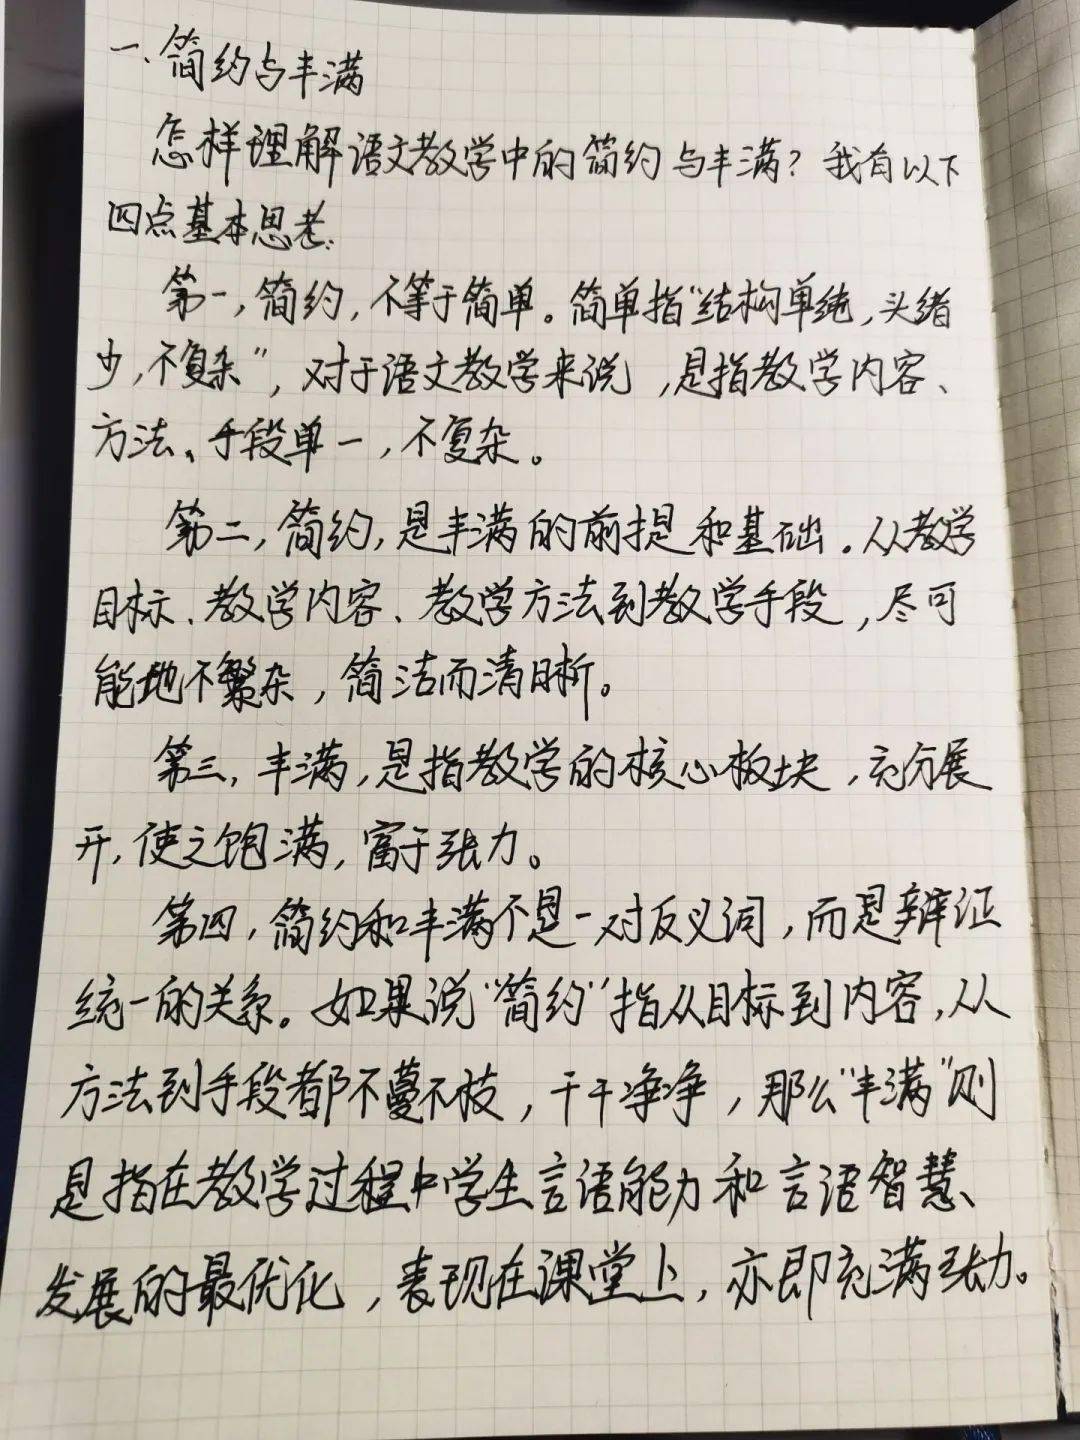 一、简约与丰满
怎样理解语文教学中的简约与丰满？我有以下
四点基本思考：
第一，简约，不等于简单。简单指“结构单纯，头绪
少，不复杂”，对于语文教学来说，是指教学内容、
方法、手段单一，不复杂。
第二，简约，是丰满的前提和基础。从教学
目标、教学内容、教学方法到教学手段，尽可
能地不繁杂，简洁而清晰。
第三，丰满，是指教学的核心板块，充分展
开，使之饱满，富于张力。
第四，简约和丰满不是一对反义词，而是辩证
统一的关系。如果说“简约”指从目标到内容，从
方法到手段都不蔓不枝，干干净净，那么“丰满”则
是指在教学过程中学生言语能力和言语智慧、
发展的最优化，表现在课堂上，亦即充满张力。